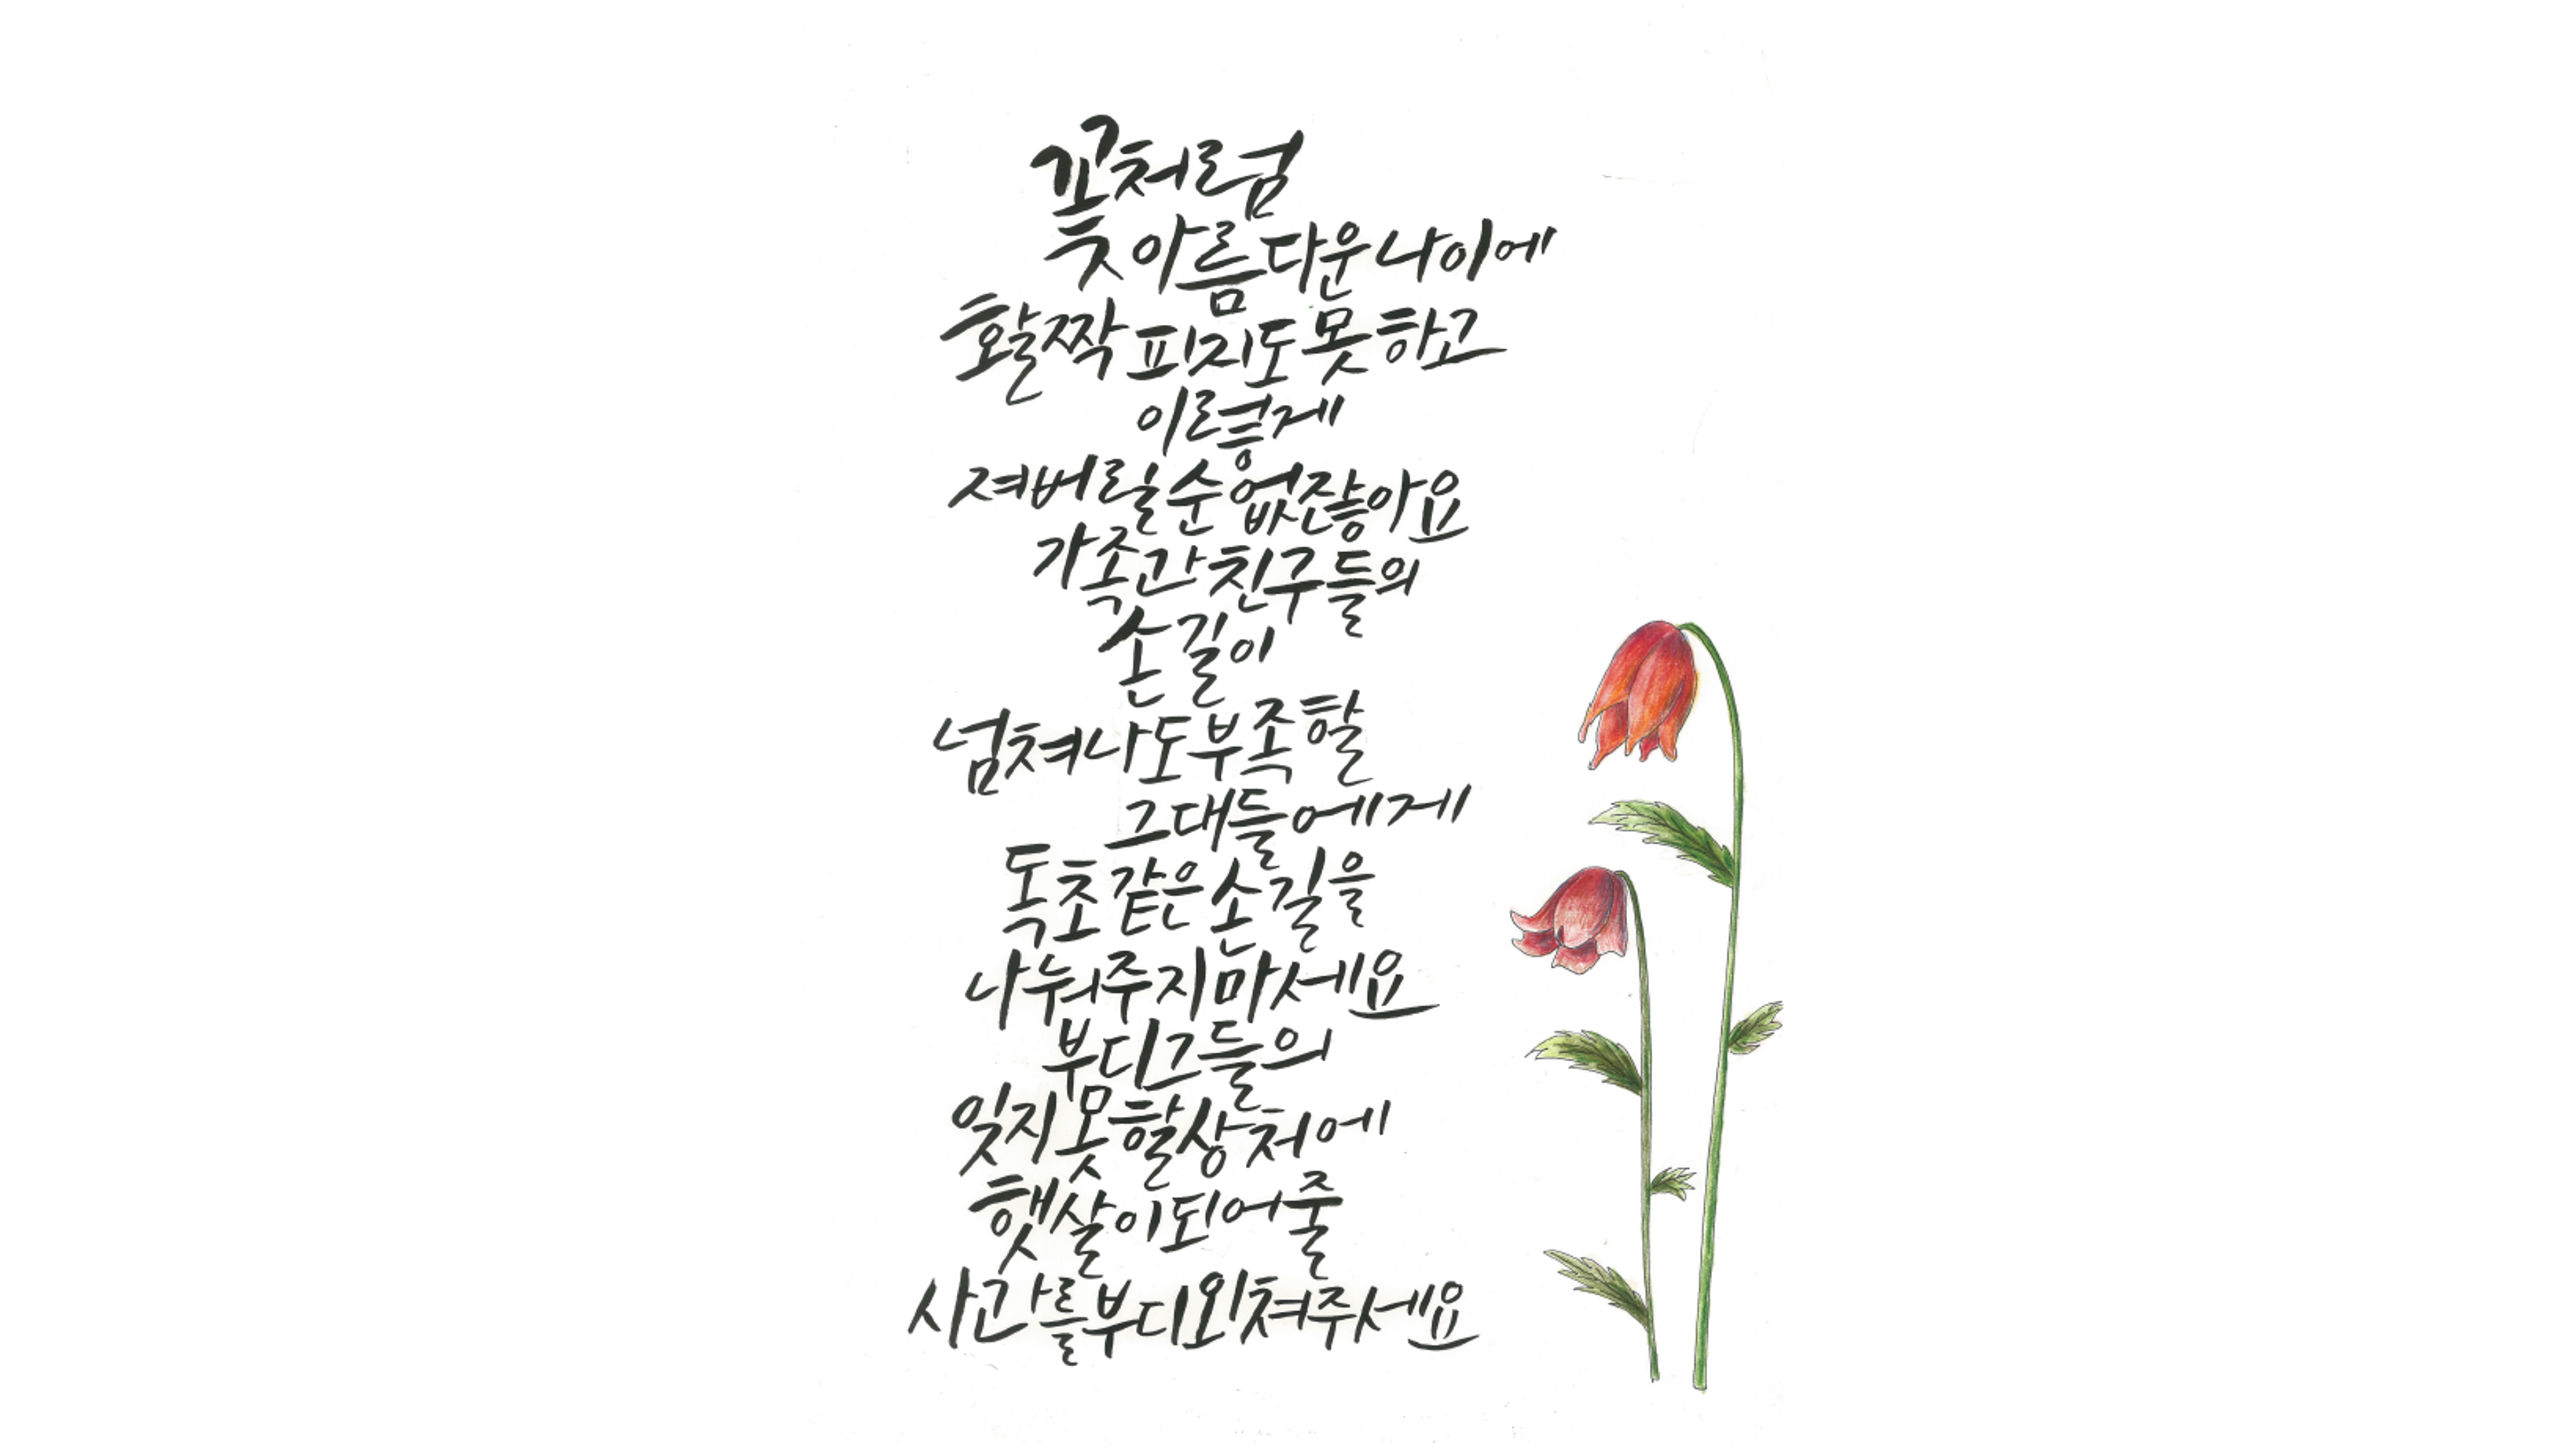 꽃처럼
아름다운 나이에
활짝 피지도 못하고
이렇게
져버릴 순 없잖아요
가족과 친구들의
손길이
넘쳐나도 부족할
그대들에게
독초 같은 손길을
나눠주지 마세요
부디 그들의
잊지 못할 상처에
햇살이 되어줄
사과를 부디 외쳐주세요